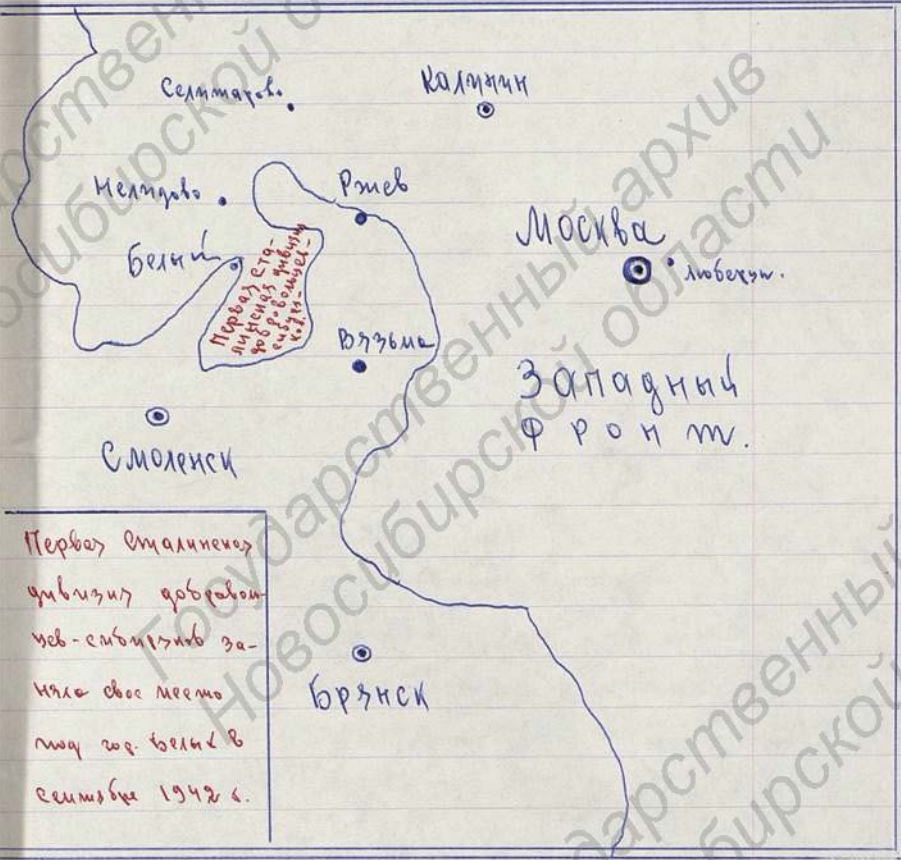 Селижарово
Калинин
Нелидово
Ржев
Москва
Люберцы.
Белый
Первая ста-
линская дивизия
добровольцев-
сибиря-
ков.
Вязьма
Западный
фронт.
Смоленск
Первая Сталинская
дивизия доброволь-
цев-сибиряков за-
няла свое место
под гор. Белый в
сентябре 1942 г.
Брянск
Государственный архив
Новосибирской области